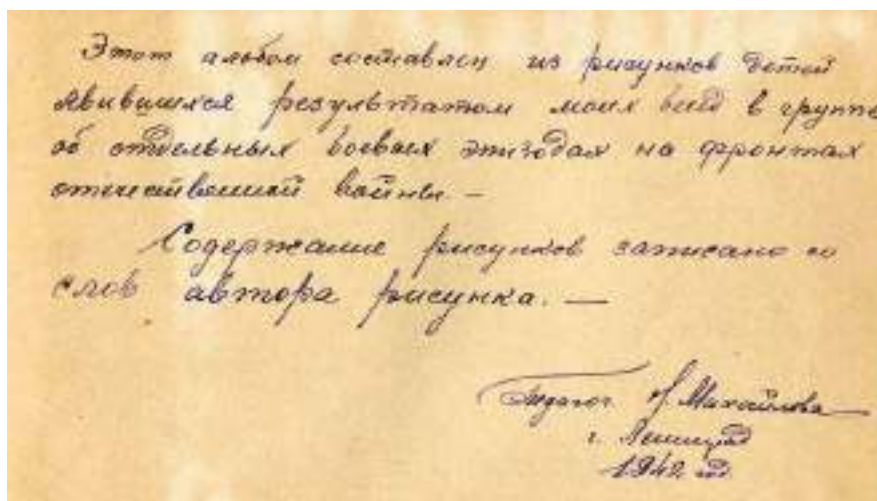 Этот альбом составлен из рисунков детей
явившихся результатом моих бесед в группе
об отдельных боевых эпизодах на фронтах
отечественной войны. —
Содержание рисунков записано со
слов автора рисунка. —
Педагог Михайлова
г. Ленинград
1942 год.